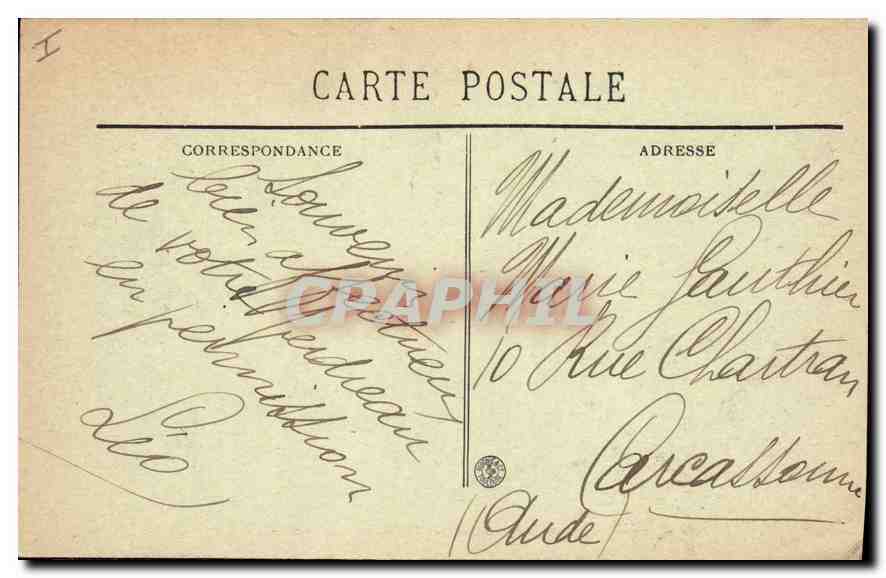 I
CARTE POSTALE
CORRESPONDANCE
Souvenir
bien affectueux
de votre Perdreau
en permission
Léo
ADRESSE
Mademoiselle
Marie Gauthier
10 Rue Chartran
Carcassonne
(Aude)
CRAPHIL